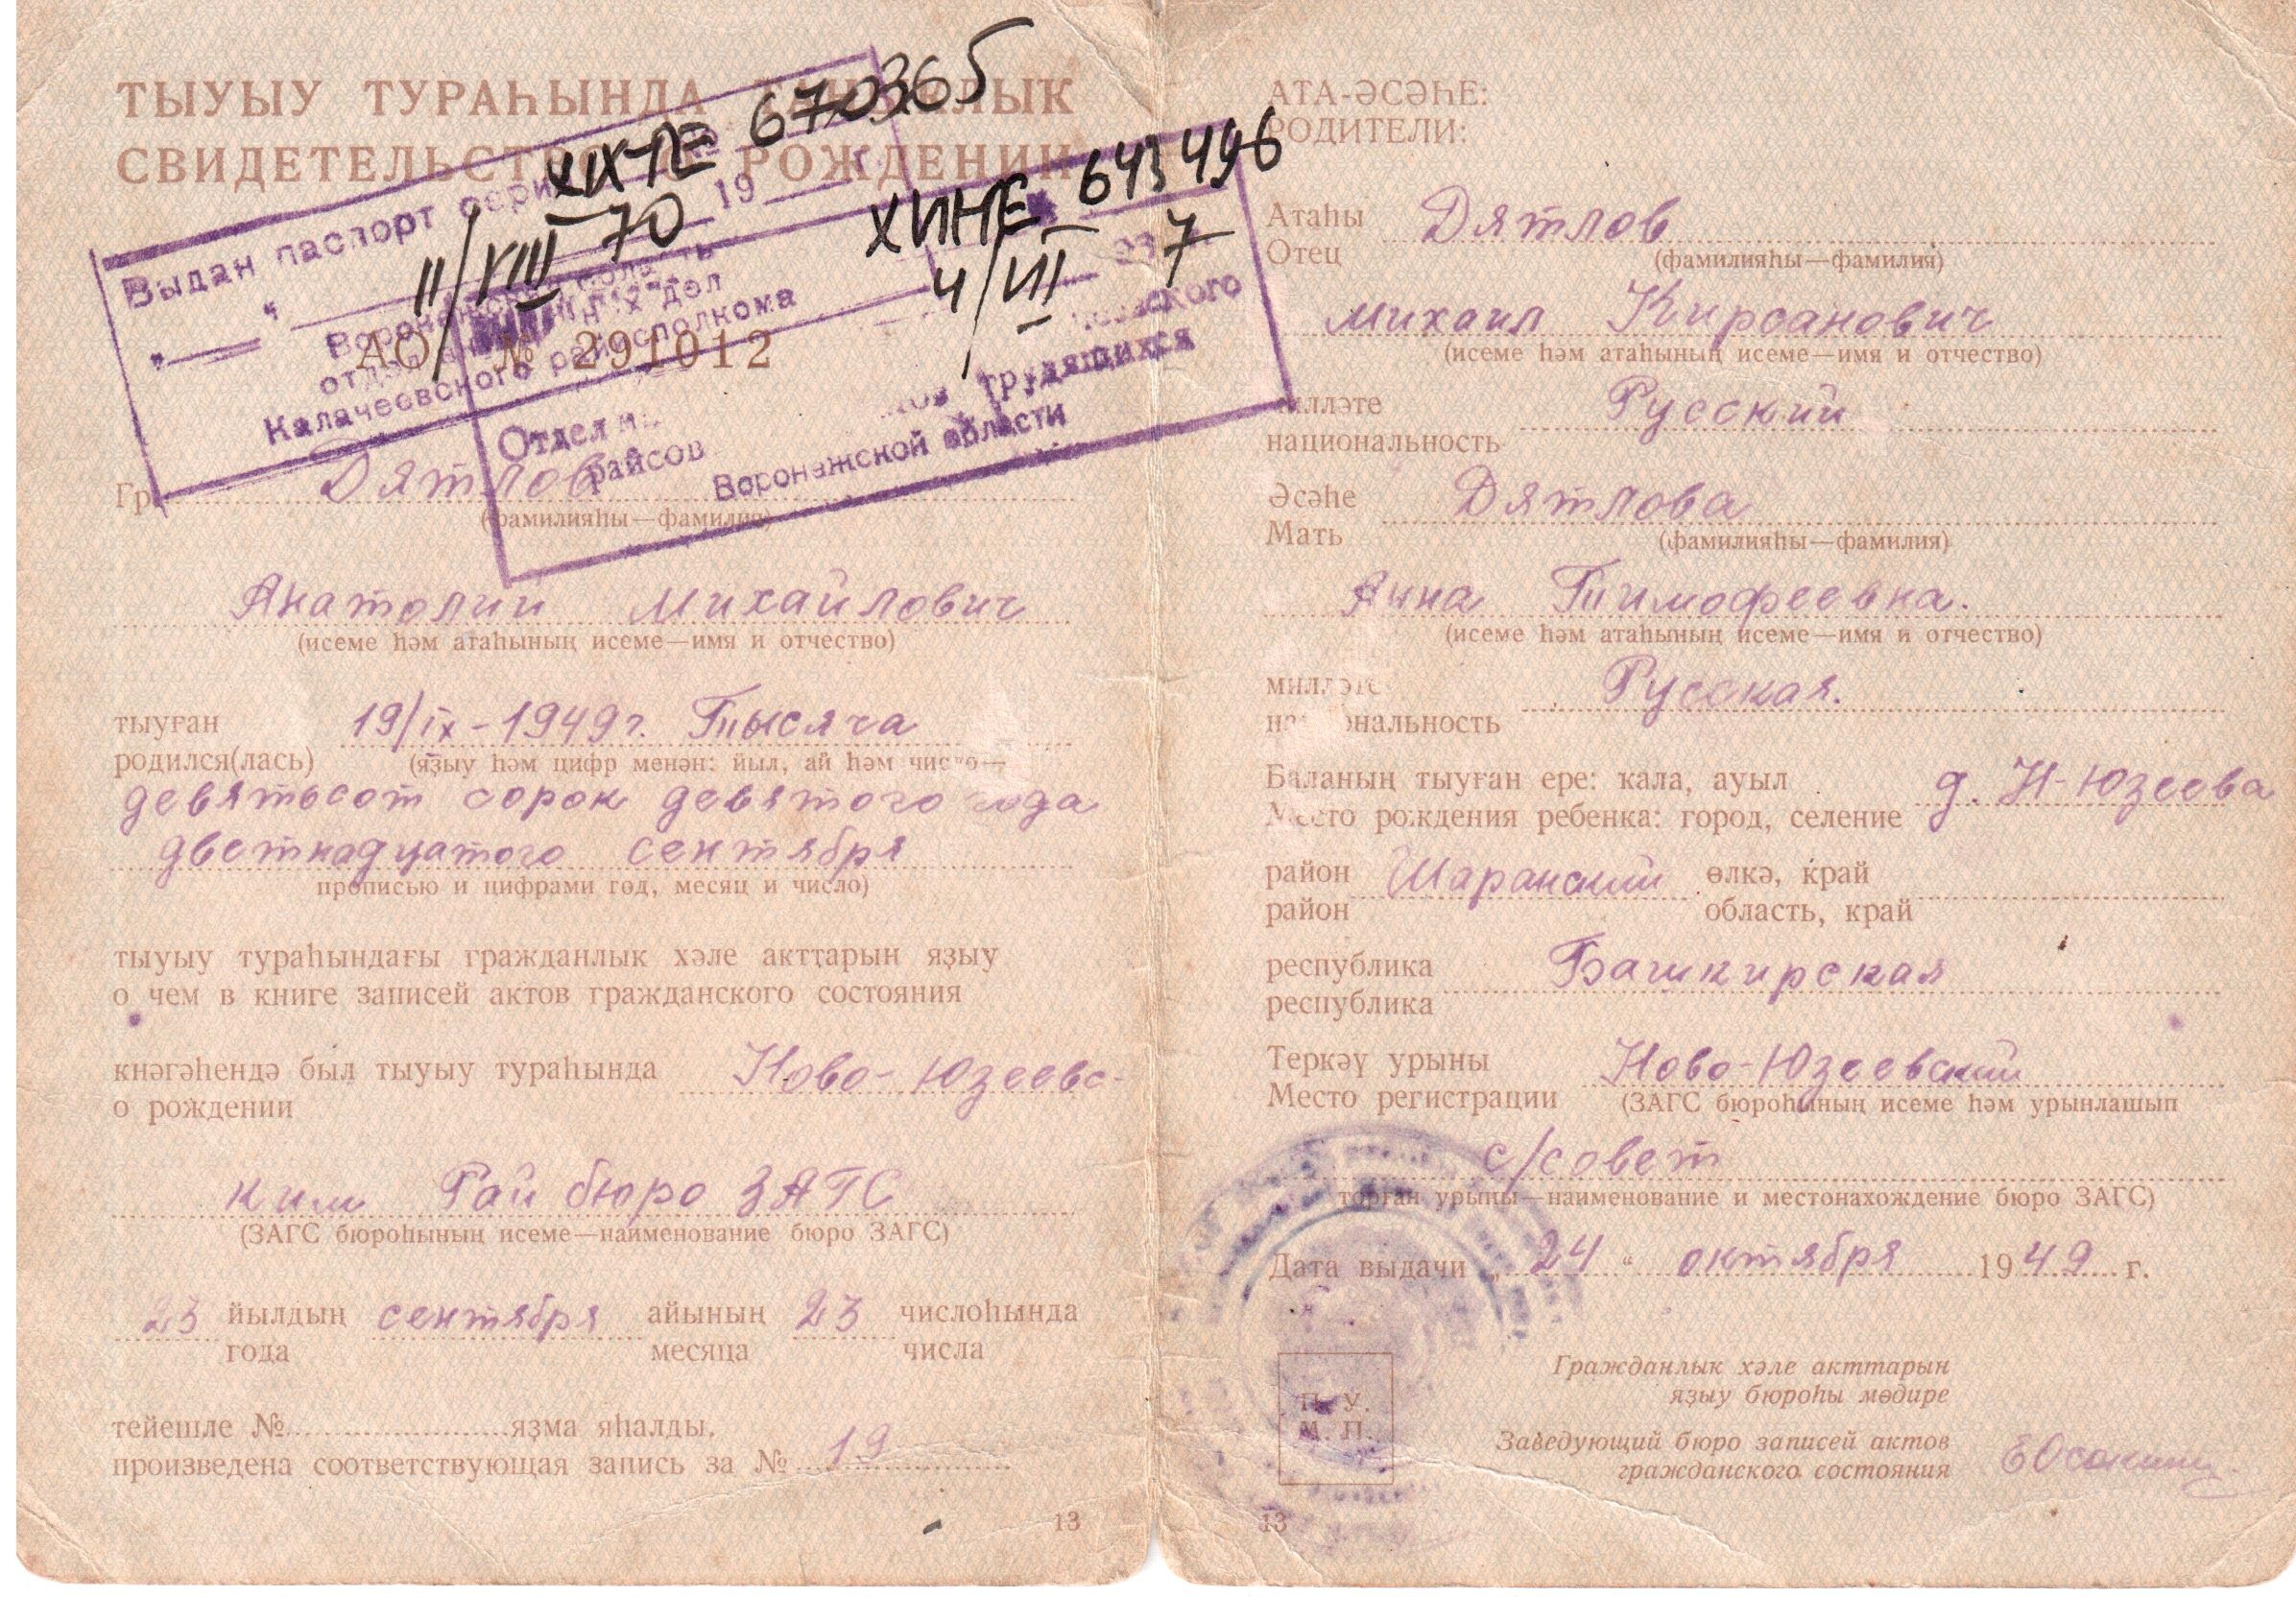 ТЫУЫУ ТУРАҺЫНДА
СВИДЕТЕЛЬСТВО О РОЖДЕНИИ
Выдан паспорт серии XIX-ПЕ 670365
19
11/VIII 70
отдел
Калачеевского райисполкома
643496
4/VII 7
Отдел
райсов трудящихся
Воронежской области
АО № 291012
Гр. Дятлов
(фамилияһы—фамилия)
Анатолий Михайлович
(исеме һәм атаһының исеме—имя и отчество)
тыуған
родился(лась) 19/IX-1949г. Тысяча
(яҙыу һәм цифр менән: йыл, ай һәм число—
девятьсот сорок девятого года
девтнадцатого сентября
прописью и цифрами год, месяц и число)
тыуыу тураһындағы гражданлык хәле акттарын яҙыу
о чем в книге записей актов гражданского состояния
кнәгәһендә был тыуыу тураһында Ново-Юзеевс-
о рождении
ким Рай бюро ЗАГС
(ЗАГС бюроһының исеме—наименование бюро ЗАГС)
23 йылдың сентября айының 23 числоһында
года месяца числа
тейешле № яҙма яһалды.
произведена соответствующая запись за № 19
13
АТА-ӘСӘҺЕ:
РОДИТЕЛИ:
Атаһы
Отец Дятлов
(фамилияһы—фамилия)
Михаил Кирсанович
(исеме һәм атаһының исеме—имя и отчество)
милләте
национальность Русский
Әсәһе
Мать Дятлова
(фамилияһы—фамилия)
Анна Тимофеевна.
(исеме һәм атаһының исеме—имя и отчество)
милләте
национальность Русская.
Баланың тыуған ере: кала, ауыл
Место рождения ребенка: город, селение д. Н-Юзеева
район Шаранский өлкә, край
район область, край
республика Башкирская
республика
Теркәү урыны Ново-Юзеевский
Место регистрации (ЗАГС бюроһының исеме һәм урынлашып
с/совет
торған урыны—наименование и местонахождение бюро ЗАГС)
Дата выдачи „24“ октября 1949 г.
Гражданлык хәле акттарын
яҙыу бюроһы мөдире
П. У.
М. П.
Заведующий бюро записей актов
гражданского состояния
13